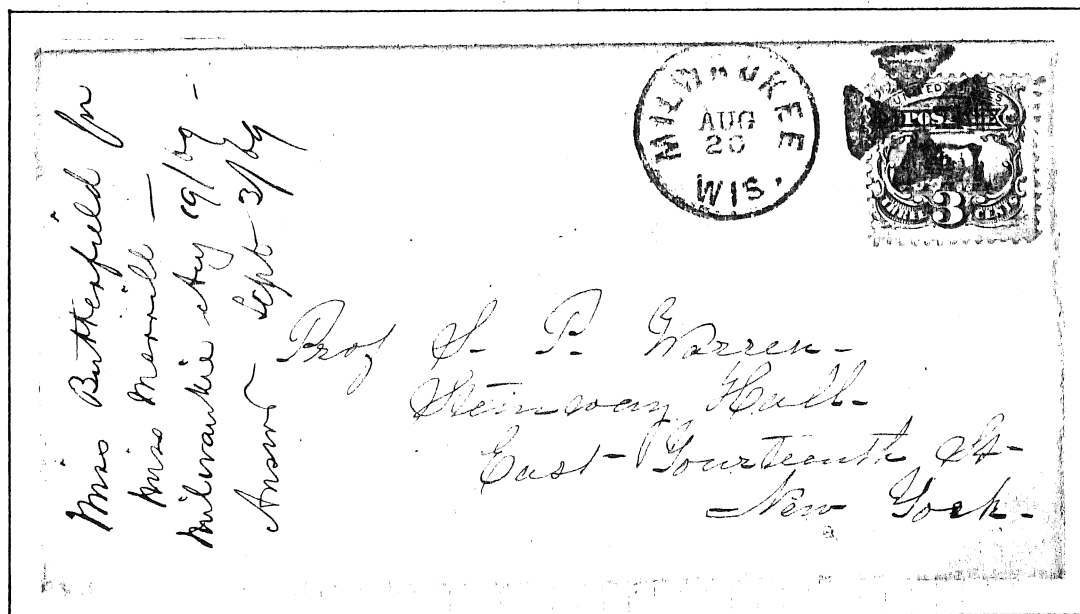 Miss Butterfield for
Miss Merrill —
Milwaukie Aug 19/69 -
Answd Sept 3/69
MILWAUKEE
AUG
20
WIS.
UNITED STATES
POSTAGE
THREE 3 CENTS
Prof S. P. Warren -
Steinway Hall -
East - Fourteenth St -
New York -